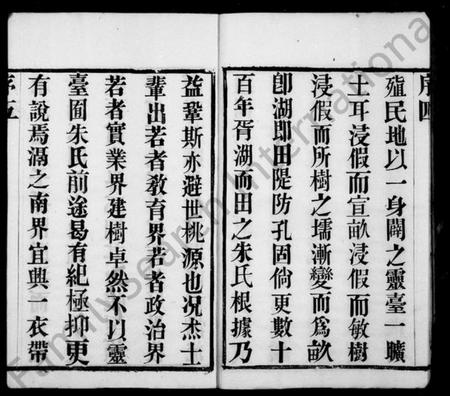 序四
殖民地以一身闢之靈臺一曠
土耳浸假而宣畝浸假而敏樹
浸假而所樹之壖漸變而爲畝
卽湖卽田隄防孔固倘更數十
百年胥湖而田之朱氏根據乃
益鞏斯亦避世桃源也况杰士
輩出若者敎育界若者政治界
若者實業界建樹卓然不以靈
臺囿朱氏前途曷有紀極抑更
有說焉滆之南界宜興一衣帶
序五
FamilySearch International